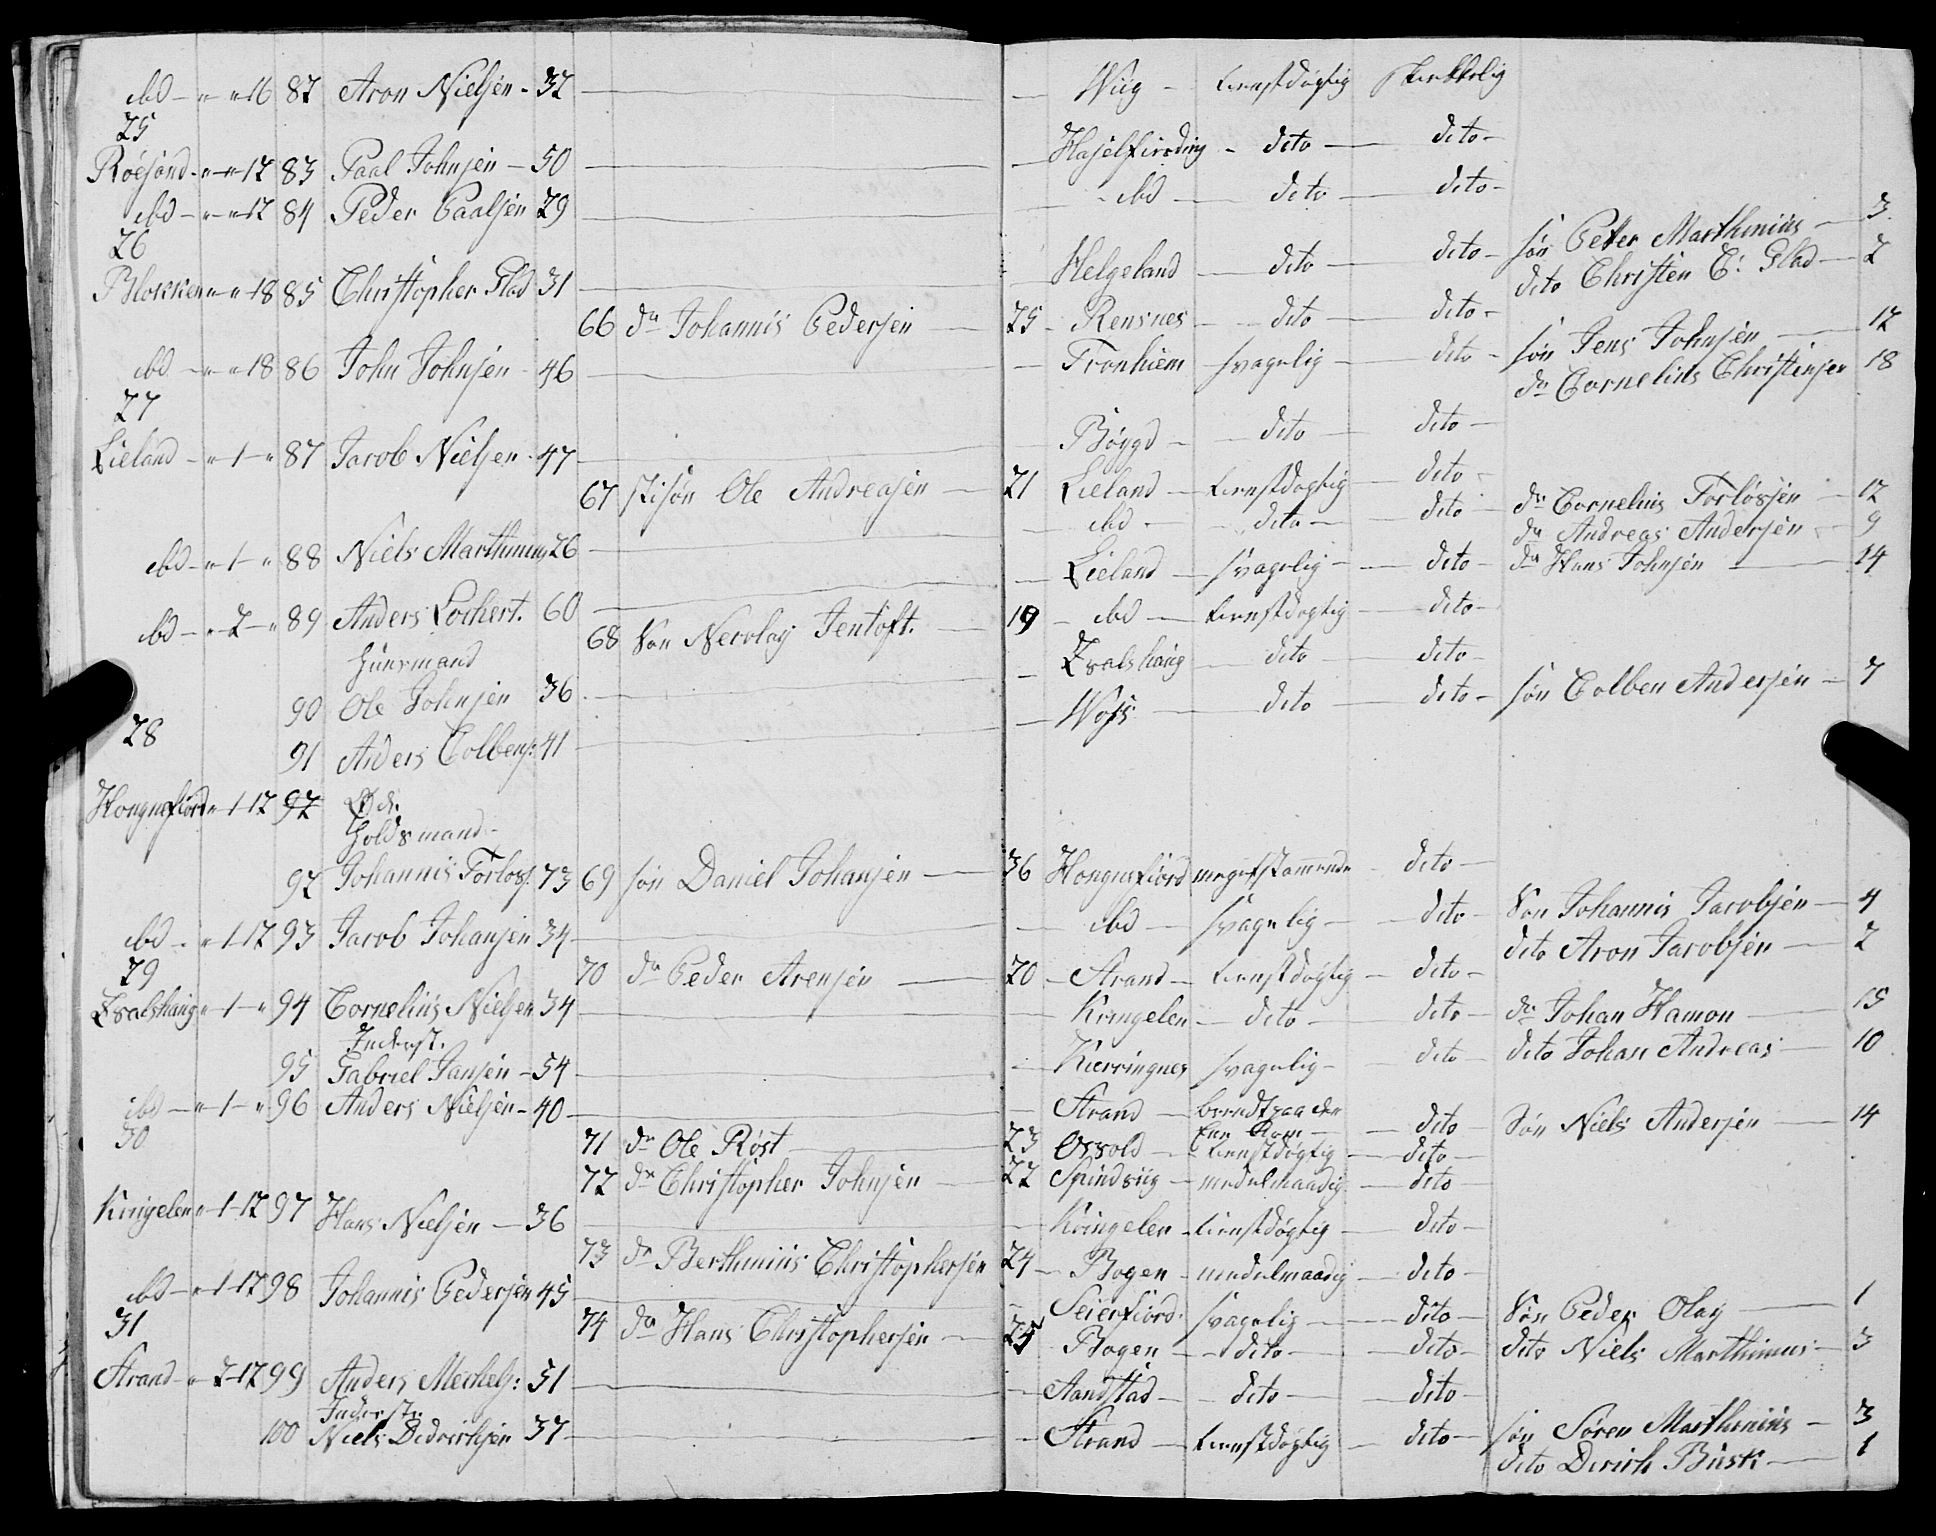 ibd - " - " 16 82 Aron Nielsen - 32 — Wiig - tienstdøgtig skikkelig
25
Røesand - " - " 12 83 Paal Johnsen - 50 — Haselfiording - dito - dito -
ibd - " - " 12 84 Peder Paalsen 29 — ibd - dito - dito -
26
Blokken " - " 18 85 Christopher Glad 31 — Helgeland - dito - dito - søn Peter Marthinius - 3
dito Christen C: Glad - 2
66 do Johannis Pedersen 25 - Rensnes - dito - dito -
ibd - " - " 18 86 John Johnsen - 46 — Tronhiem svagelig - dito - søn Jens Johnsen - 12
do Cornelius Christensen 18
27
Lieland - " 1 - " 87 Jacob Nielsen - 47 — Bøygd - dito - dito -
67 stisøn Ole Andreasen - 21 Lieland - tienstdøgtig - dito -
ibd - " 1 - " 88 Niels Marthinius 26 — ibd - dito - dito - do Cornelius Torløssen - 12
do Andreas Andersen - 9
ibd - " 2 - " 89 Anders Lochert. 60 — Lieland - svagelig - dito - do Hans Johnsen - 14
68 Søn Necolay Jentoft. 19 - ibd - tienstdøgtig - dito -
Huusmand
90 Ole Johnsen 36 — Kvalshaug - dito - dito -
91 Anders Colbens: 41 — Woss - dito - dito - søn Colben Andersen - 7
28
Hongnefiord " 1 - 12 92 Øde
Holdsmand -
92 Johannis Torløss: 73 69 søn Daniel Johansen - 36 Hongnefiord meget stammende - dito -
ibd - " 1 - 12 93 Jacob Johansen 34 — ibd - svagelig - dito - Søn Johannis Jacobsen - 4
dito Aron Jacobsen - 2
29
70 do Peder Arensen - 20 - Strand - tienstdøgtig - dito -
Kvalshaug " - 1 - " 94 Cornelius Nielsen 34 — Kringelen - dito - dito - do Johan Hamon - 15
Inderst.
95 Gabriel Jansen - 54 — Kierringnes svagelig - dito - dito Johan Andreas - 10
ibd - " 1 - " 96 Anders Nielsen - 40 — Strand - brendt paa den
Ene Arm - dito - Søn Niels Andersen - 14
30
71 do Ole Røst 23 Osvold - tienstdøgtig - dito -
72 do Christopher Johnsen - 22 Spindviig - medelmaadig - dito -
Kringelen " 1 - 12 97 Hans Nielsen - 36 — Kringelen - tienstdøgtig - dito -
73 do Berthinius Christophersen 24 - Bogen - medelmaadig - dito -
ibd - " 1 - 12 98 Johannis Pedersen 45 — Seierfiord. svagelig - dito - Søn Peder Olay - 1
74 do Hans Christophersen - 25 Bogen - dito - dito - dito Niels Marthinius - 3
31
Strand - " 2 - 12 99 Anders Mechels: 51 — Sandstad - dito - dito -
Inderste
100 Niels Didrichsen 37 — Strand - tienstdøgtig - dito - søn Søren Marthinius - 3
dito Dirich Busk - 1